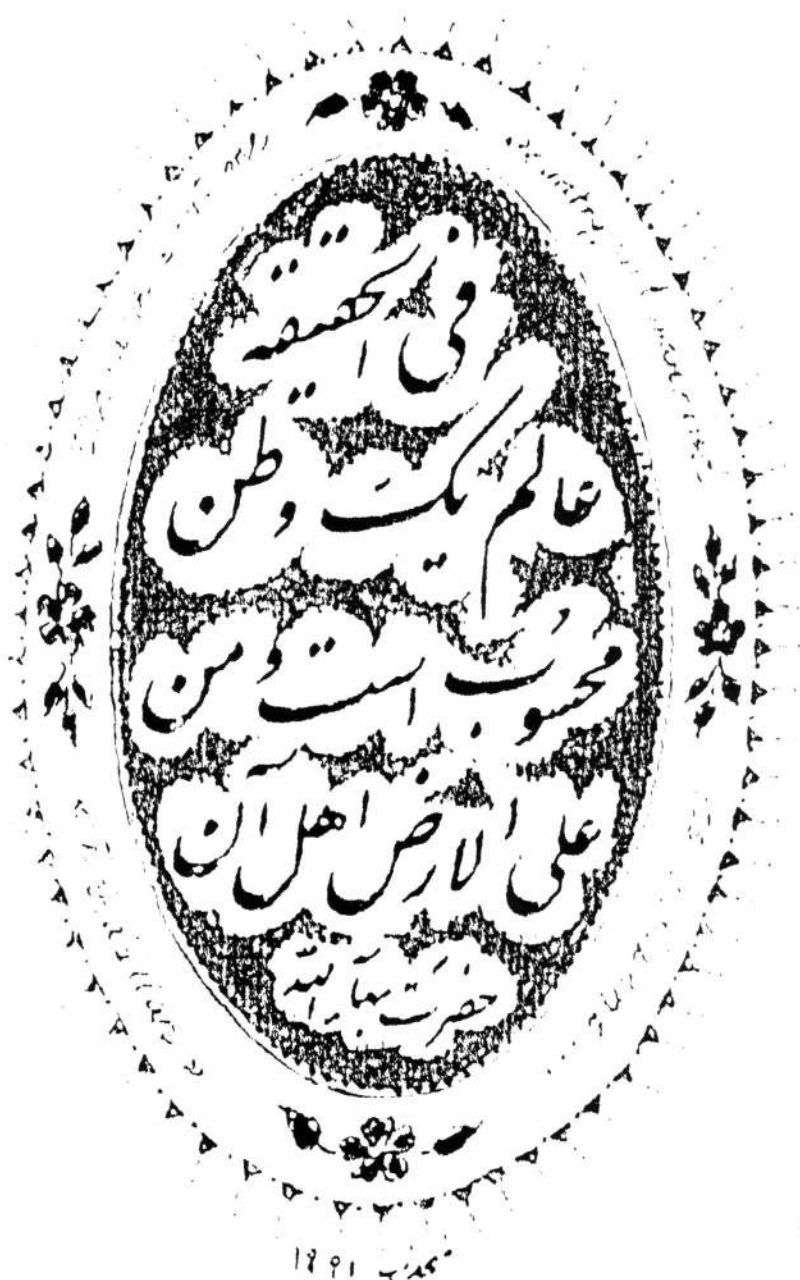 فی الحقیقه
عالم یک وطن
محسوب است و من
علی الارض اهل آن
حضرت بهآءالله
1891